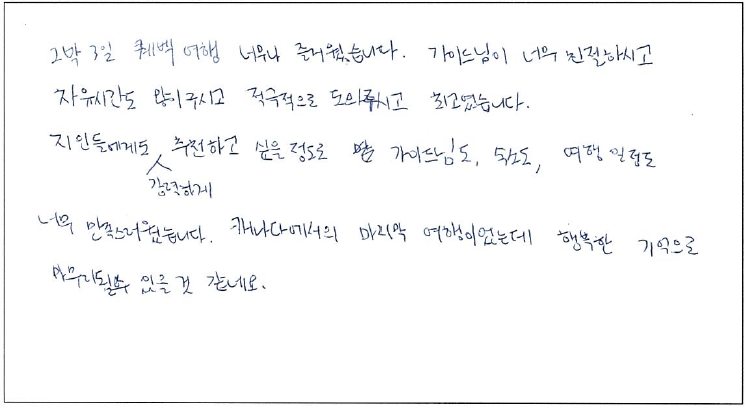 2박 3일 퀘백 여행 너무나 즐거웠습니다. 가이드님이 너무 친절하시고
자유시간도 많이 주시고 적극적으로 도와주시고 최고였습니다.
지인들에게도 추천하고 싶을 정도로 가이드님도, 숙소도, 여행 일정도
강력하게
너무 만족스러웠습니다. 캐나다에서의 마지막 여행이었는데 행복한 기억으로
마무리될수 있을 것 같네요.